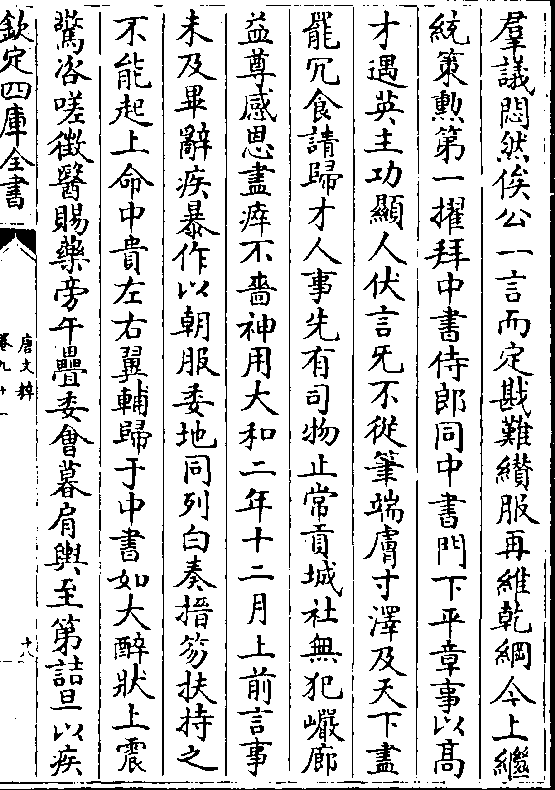 羣議悶然俟公一言而定戡難纉服再維乾綱今上繼
統策勲第一擢拜中書侍郎同中書門下平章事以髙
才遇英主功顯人伏言旡不從筆端膚寸澤及天下盡
罷冗食請歸才人事先有司物止常貢城社無犯巖廊
益尊感恩盡瘁不嗇神用大和二年十二月上前言事
未及畢辭疾暴作以朝服委地同列白奏搢笏扶持之
不能起上命中貴左右翼輔歸于中書如大醉狀上震
驚咨嗟徵醫賜藥旁午疊委會暮肩輿至第詰旦以疾
欽定四庫全書
唐文粹
卷九十一
十八